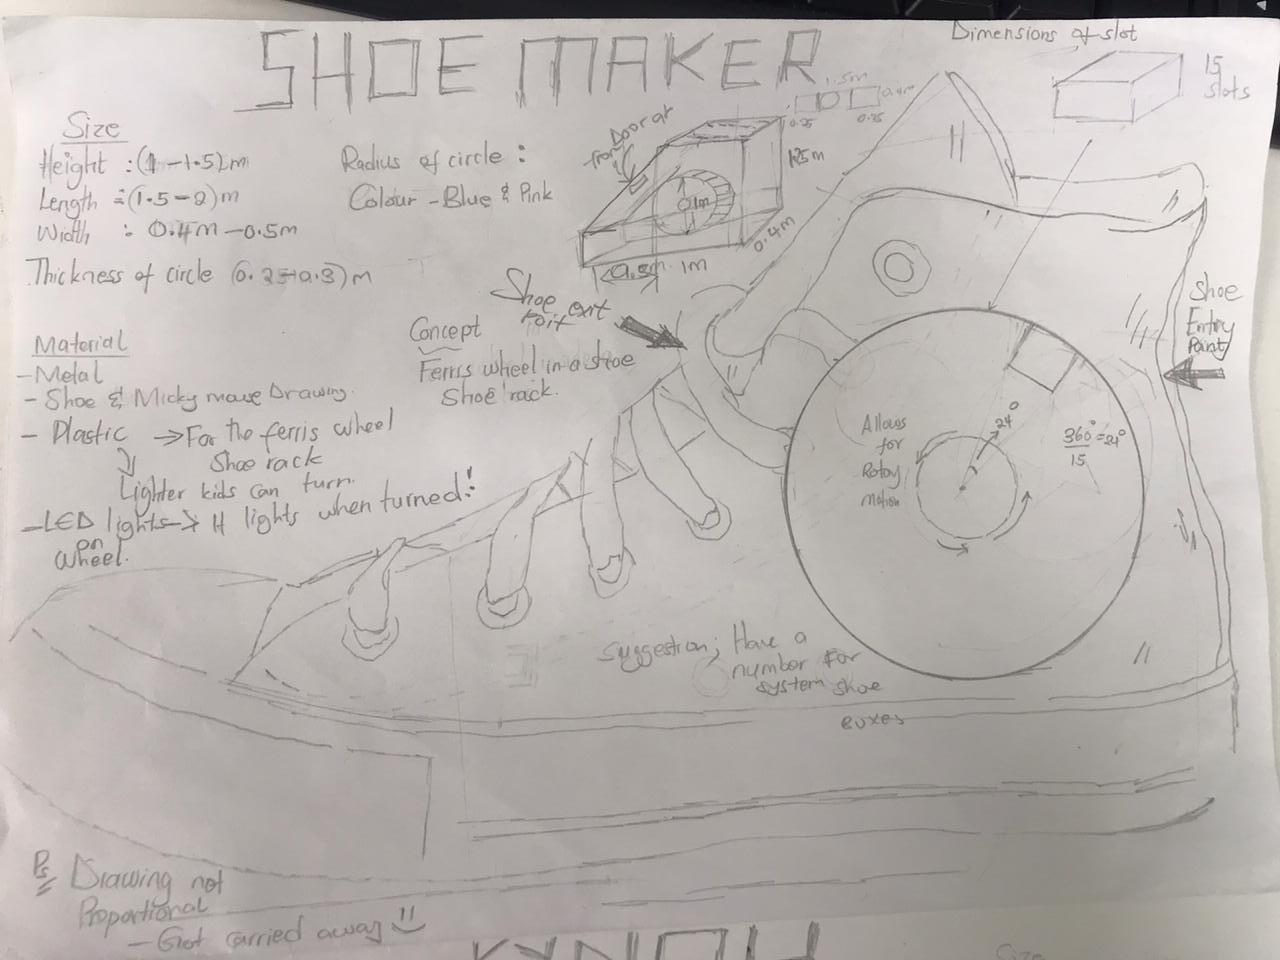 SHOE MAKER
Size
Height : (1-1.5)m
Length = (1.5-2)m
Width : 0.4m-0.5m
Thickness of circle (0.25-0.3)m
Radius of circle :
Colour - Blue & Pink
Door at
front
1m
0.5m 1m
0.4m
1.25m
.5m
0.4m
0.25 0.25
Dimensions of slot
15
slots
Material
- Metal
- Shoe & Micky mouse Drawing.
- Plastic → For the ferris wheel
Shoe rack
Lighter kids can turn.
- LED lights → It lights when turned!
on
wheel.
Concept
Ferris wheel in a shoe
Shoe rack.
Shoe
exit
Shoe
Entry
Point
Allows
for
Rotary
motion
24°
360° = 24°
15
Suggestion; Have a
number for
system shoe
Boxes
Ps Drawing not
Proportional
- Got carried away
Size